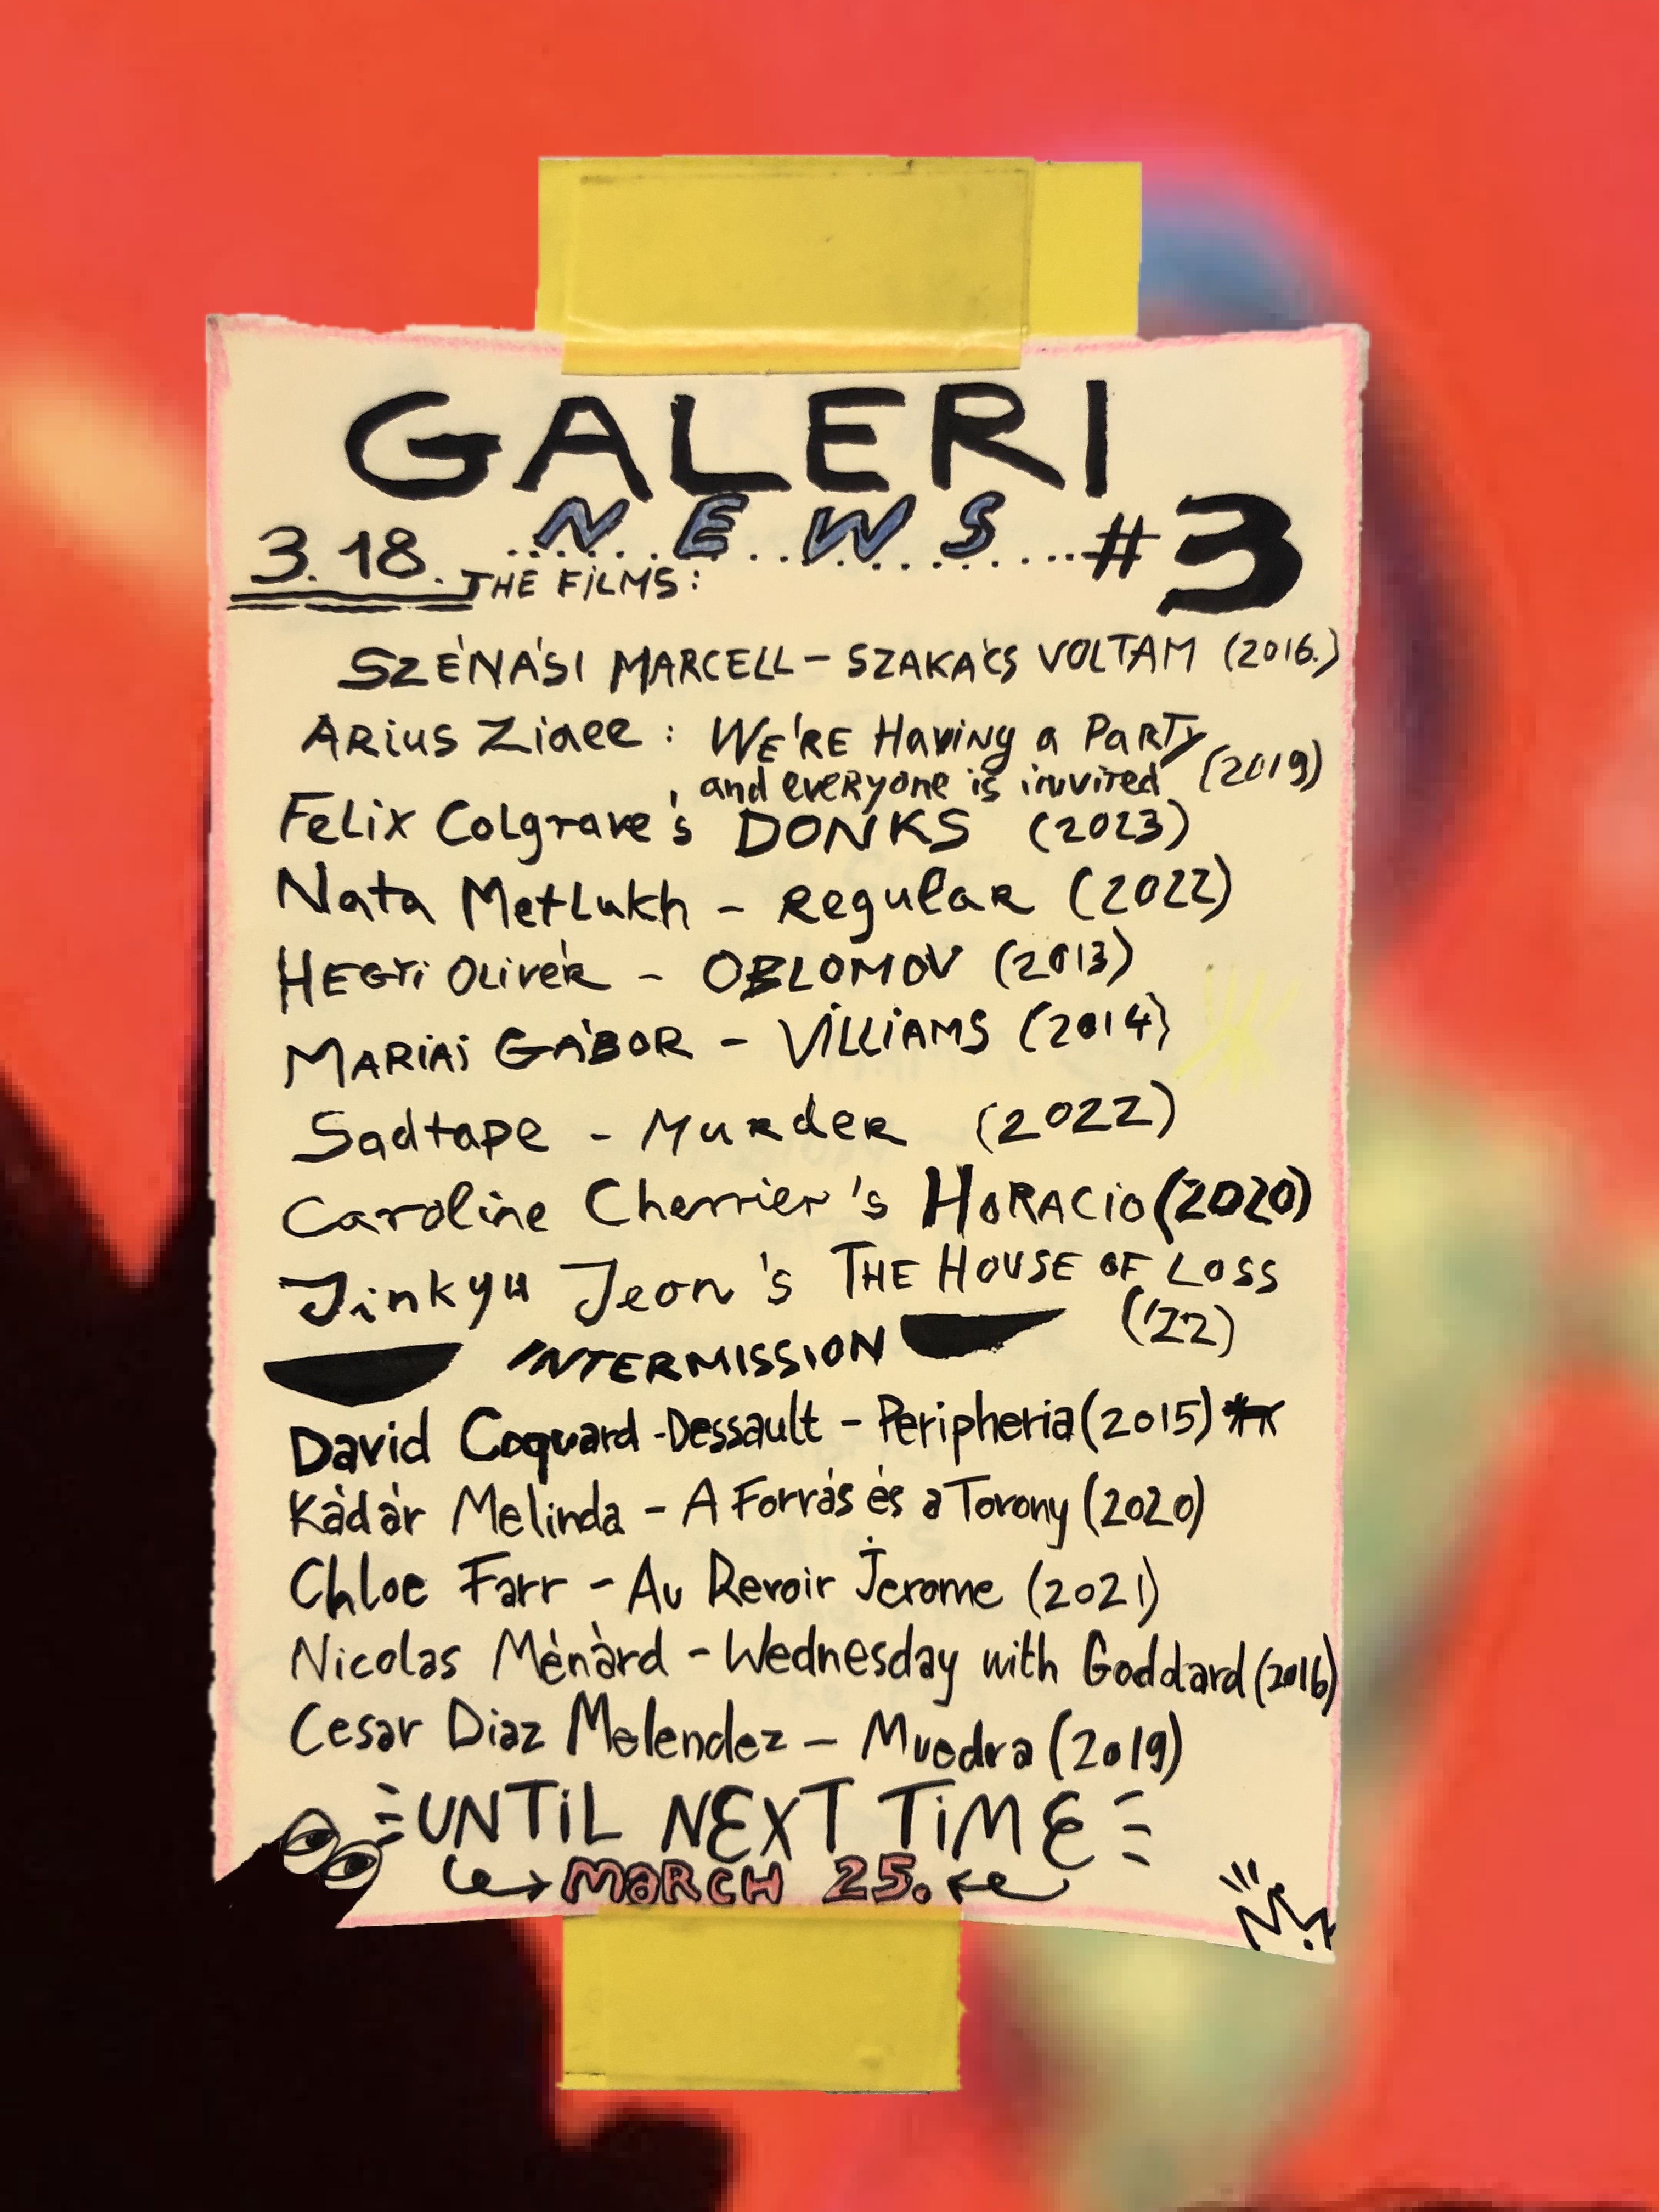 GALERI
NEWS
3.18. #3
THE FILMS:
SZÉNÁSI MARCELL – SZAKÁCS VOLTAM (2016.)
ARius Ziaee : WE'RE Having a PaRTy
and eveRyone is invited (2019)
Felix Colgrave's DONKS (2023)
Nata Metlukh – Regular (2022)
HEGYi Olivér – OBLOMOV (2013)
MARiAi GÁBOR – ViLLiAMS (2014)
Sadtape – MuRdeR (2022)
Caroline Cherrier's HORACiO (2020)
Jinkyu Jeon's THE HOUSE OF LOSS
('22)
INTERMISSION
David Coquard-Dessault – Peripheria (2015)
Kàdàr Melinda – A Forrás és a Torony (2020)
Chloe Farr – Au Revoir Jerome (2021)
Nicolas Mènàrd – Wednesday with Goddard (2016)
Cesar Diaz Melendez – Muedra (2019)
UNTiL NEXT TiME
MaRCH 25.